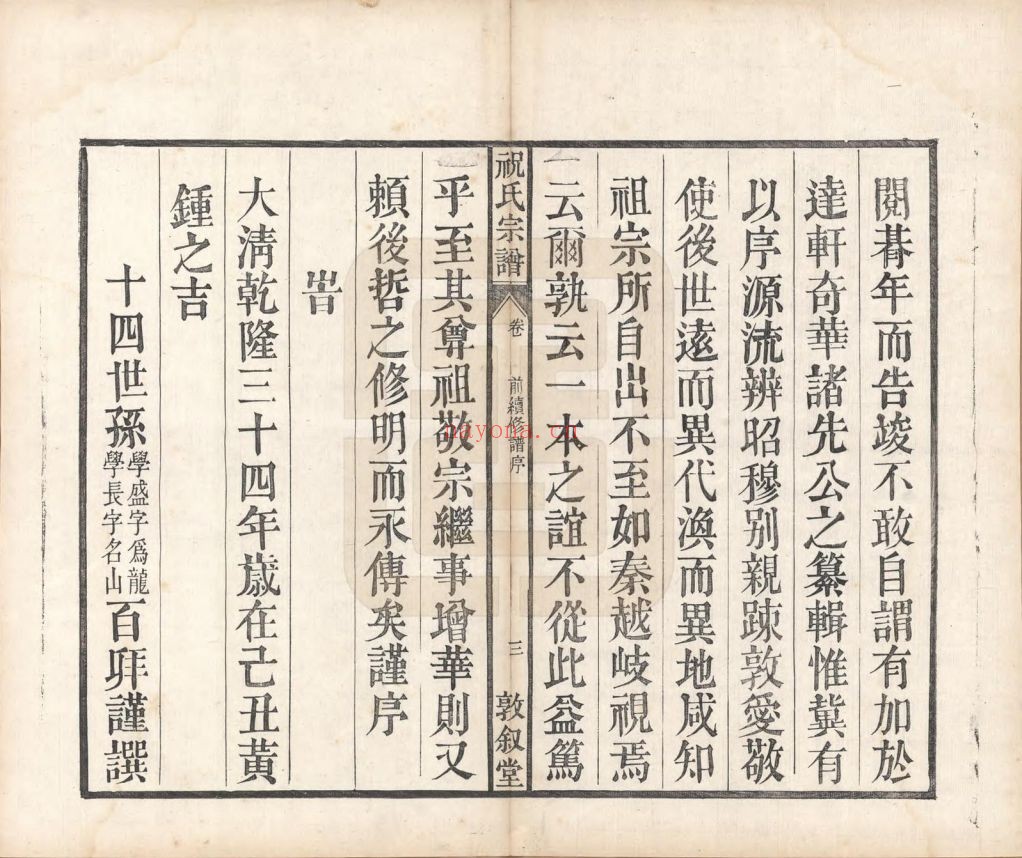 閱朞年而告竣不敢自謂有加於
達軒奇華諸先公之纂輯惟冀有
以序源流辨昭穆别親踈敦愛敬
使後世遠而異代渙而異地咸知
祖宗所自出不至如秦越岐視焉
云爾孰云一本之誼不從此益篤
祝氏宗譜 卷 前續修譜序 三 敦叙堂
乎至其尊祖敬宗繼事增華則又
頼後哲之修明而永傳矣謹序
旹
大清乾隆三十四年歲在己丑黃
鍾之吉
十四世孫學盛字爲龍學長字名山百拜謹撰
nayona.cn